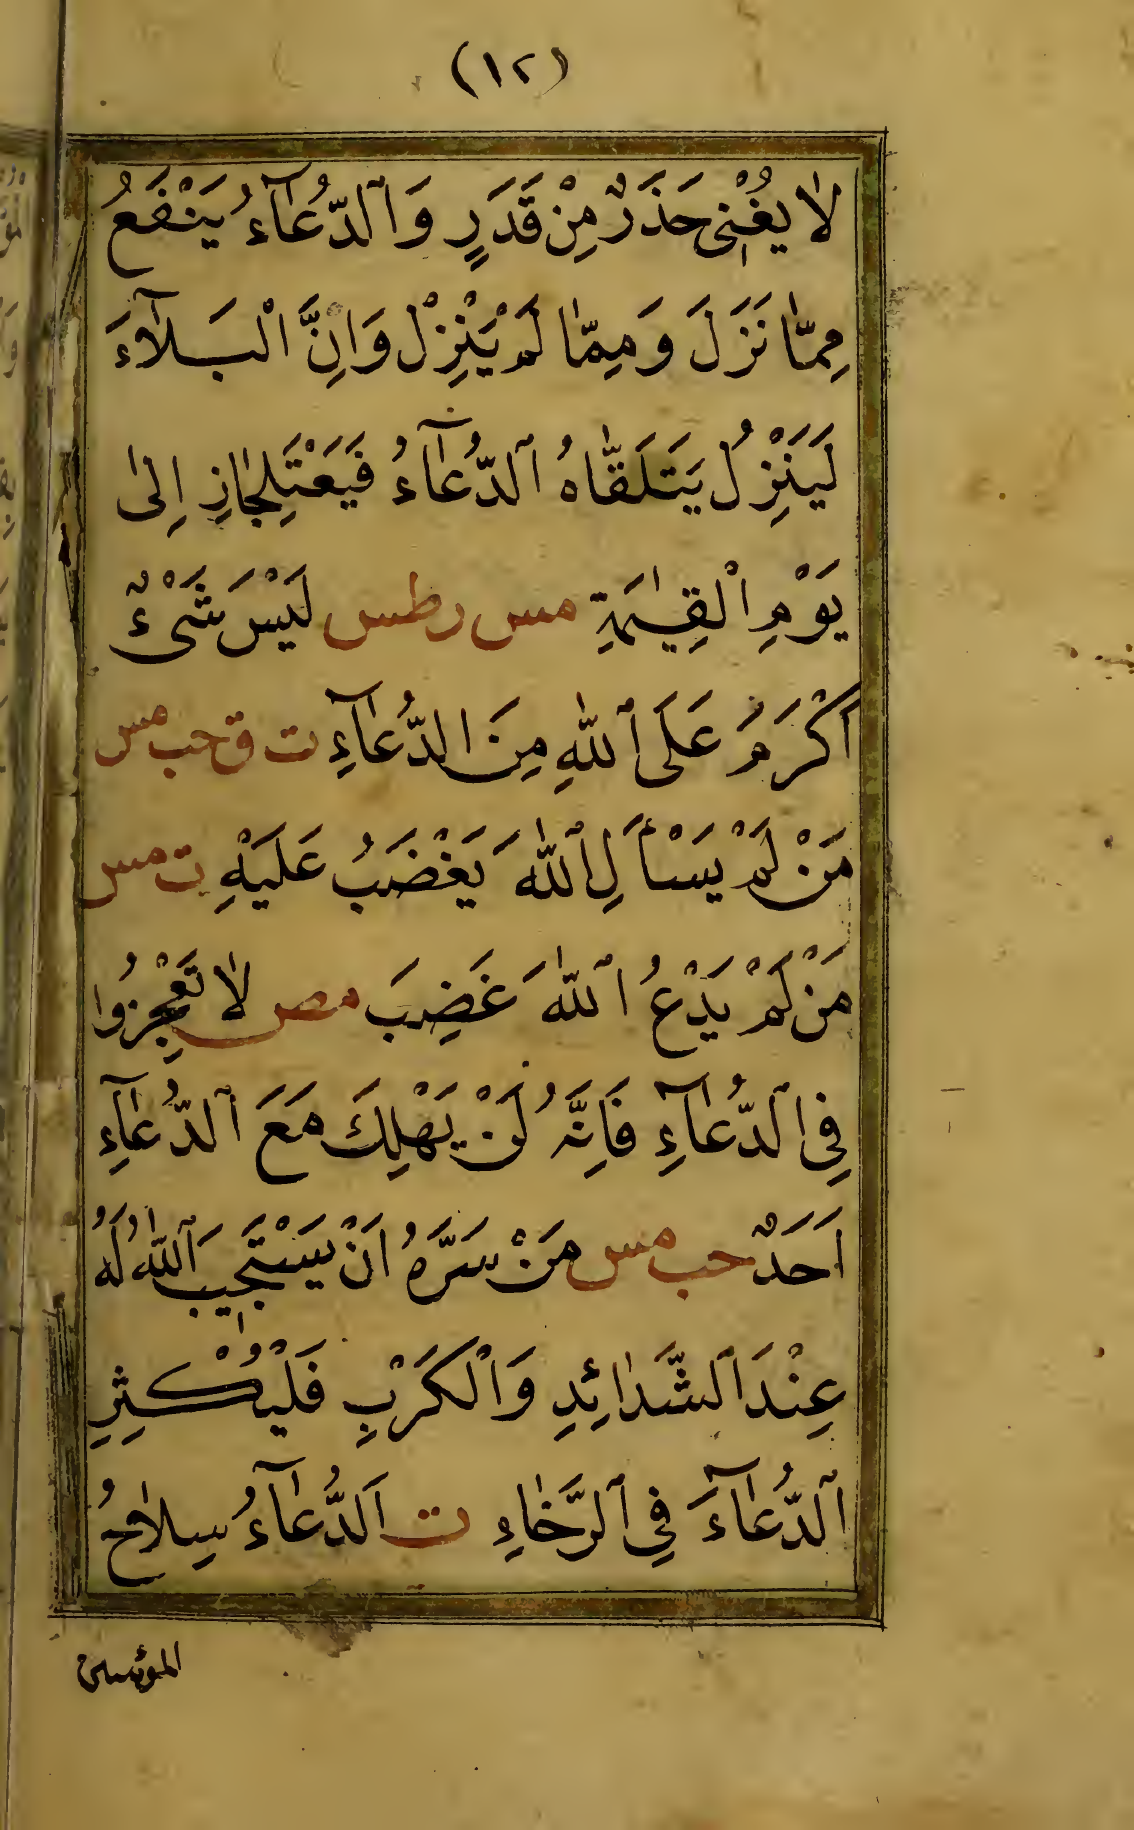 (١٢)
لَا يُغْنِي حَذَرٌ مِنْ قَدَرٍ وَالدُّعَآءُ يَنْفَعُ
مِمَّا نَزَلَ وَمِمَّا لَمْ يَنْزِلْ وَاِنَّ الْبَلَآءَ
لَيَنْزِلُ يَتَلَقَّاهُ الدُّعَآءُ فَيَعْتَلِجَانِ اِلٰى
يَوْمِ الْقِيٰمَةِ مس رطس لَيْسَ شَىْءٌ
اَكْرَمُ عَلَى اللّٰهِ مِنَ الدُّعَآءِ ت ق حب مس
مَنْ لَمْ يَسْأَلِ اللّٰهَ يَغْضَبُ عَلَيْهِ ت مس
مَنْ لَمْ يَدْعُ اللّٰهَ غَضِبَ مص لَا تَعْجِزُوا
فِى الدُّعَآءِ فَاِنَّهُ لَنْ يَهْلِكَ مَعَ الدُّعَآءِ
اَحَدٌ حب مس مَنْ سَرَّهُ اَنْ يَسْتَجِيبَ اللّٰهُ لَهُ
عِنْدَ الشَّدَائِدِ وَالْكَرْبِ فَلْيُكْثِرِ
الدُّعَآءَ فِى الرَّخَاءِ ت اَلدُّعَآءُ سِلَاحُ
المؤمن